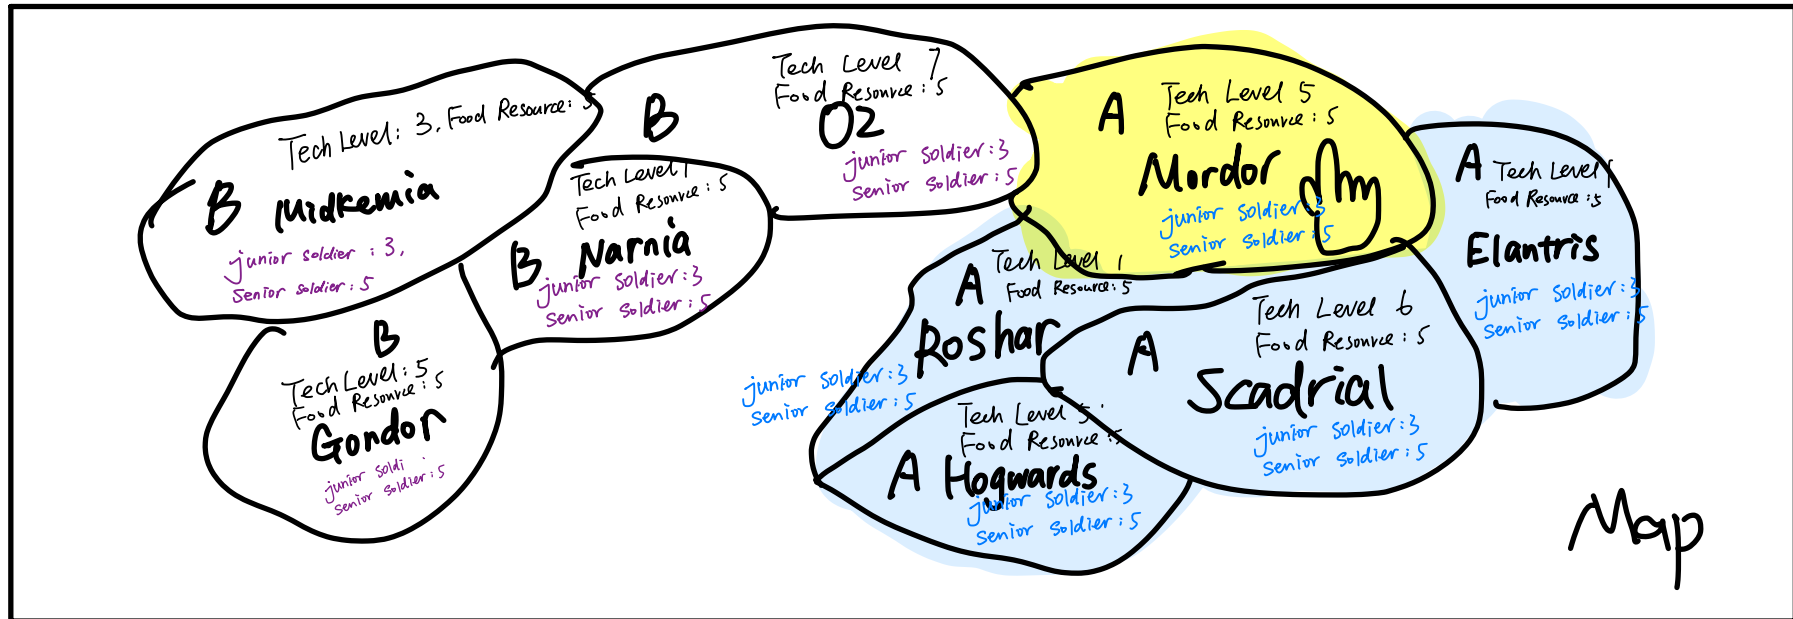 Tech Level: 3, Food Resource: 5
B Midkemia
junior soldier : 3,
senior soldier : 5
B
Tech Level: 5
Food Resource: 5
Gondor
junior soldi
senior soldier: 5
Tech Level 1
Food Resource: 5
B Narnia
junior soldier :3
senior soldier: 5
Tech Level 7
Food Resource: 5
B O2
junior soldier :3
senior soldier: 5
A Tech Level 5
Food Resource: 5
Mordor
junior soldier :3
senior soldier: 5
A Tech Level
Food Resource: 5
Elantris
junior soldier: 3
senior soldier: 5
Tech Level 1
A Food Resource: 5
Roshar
junior soldier: 3
senior soldier: 5
Tech Level 6
A Food Resource: 5
Scadrial
junior soldier: 3
senior soldier: 5
Tech Level 5
Food Resource: 5
A Hogwards
junior soldier: 3
senior soldier: 5
Map